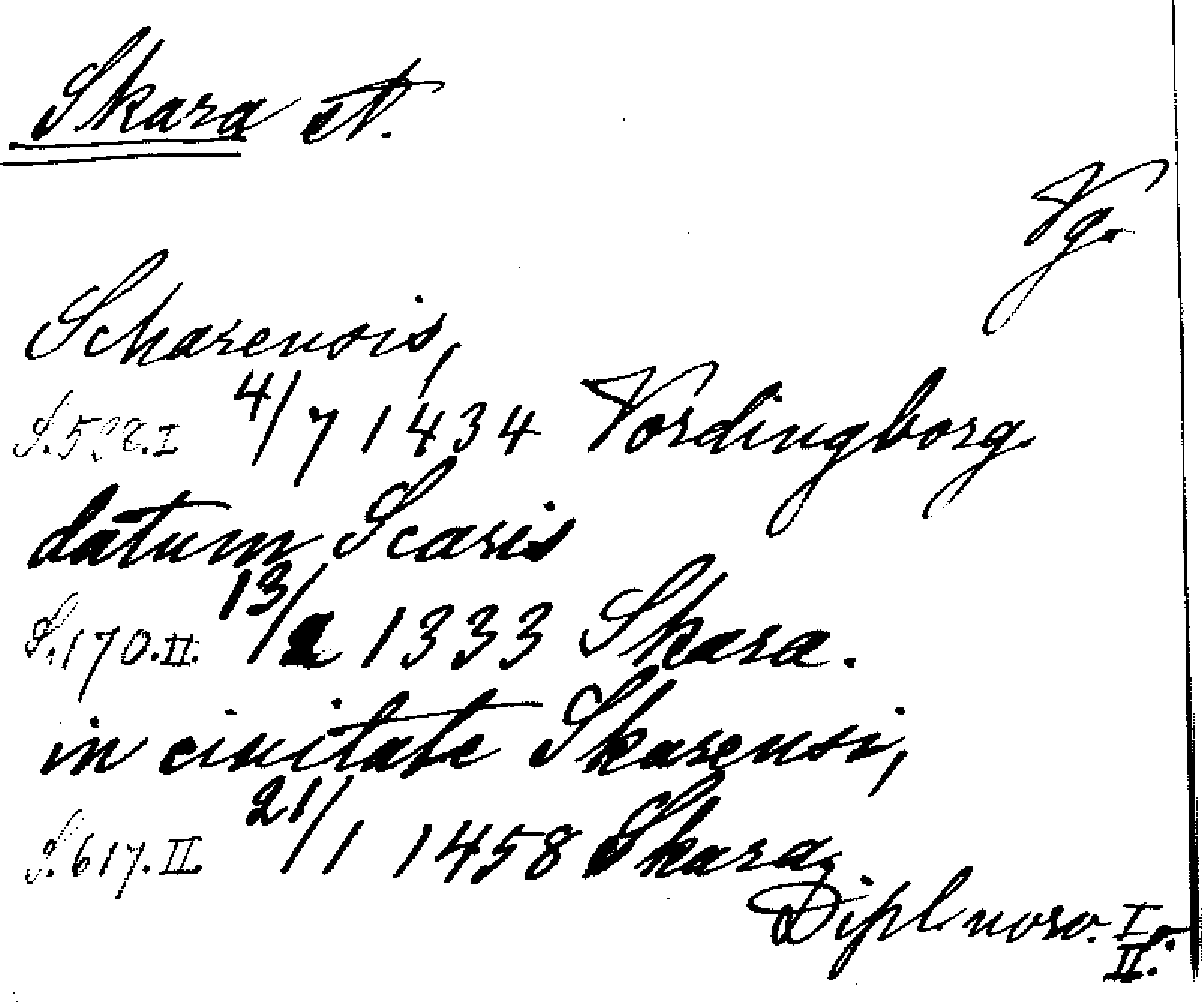 Skara st.
Vg.
Scharensis,
S. 528. I 4/7 1434 Vordingborg.
datum Scaris
S. 170. II. 13/2 1333 Skara.
in civitate Skarensi,
S. 617. II 21/1 1458 Skara,
Dipl. norv. I o.
II.